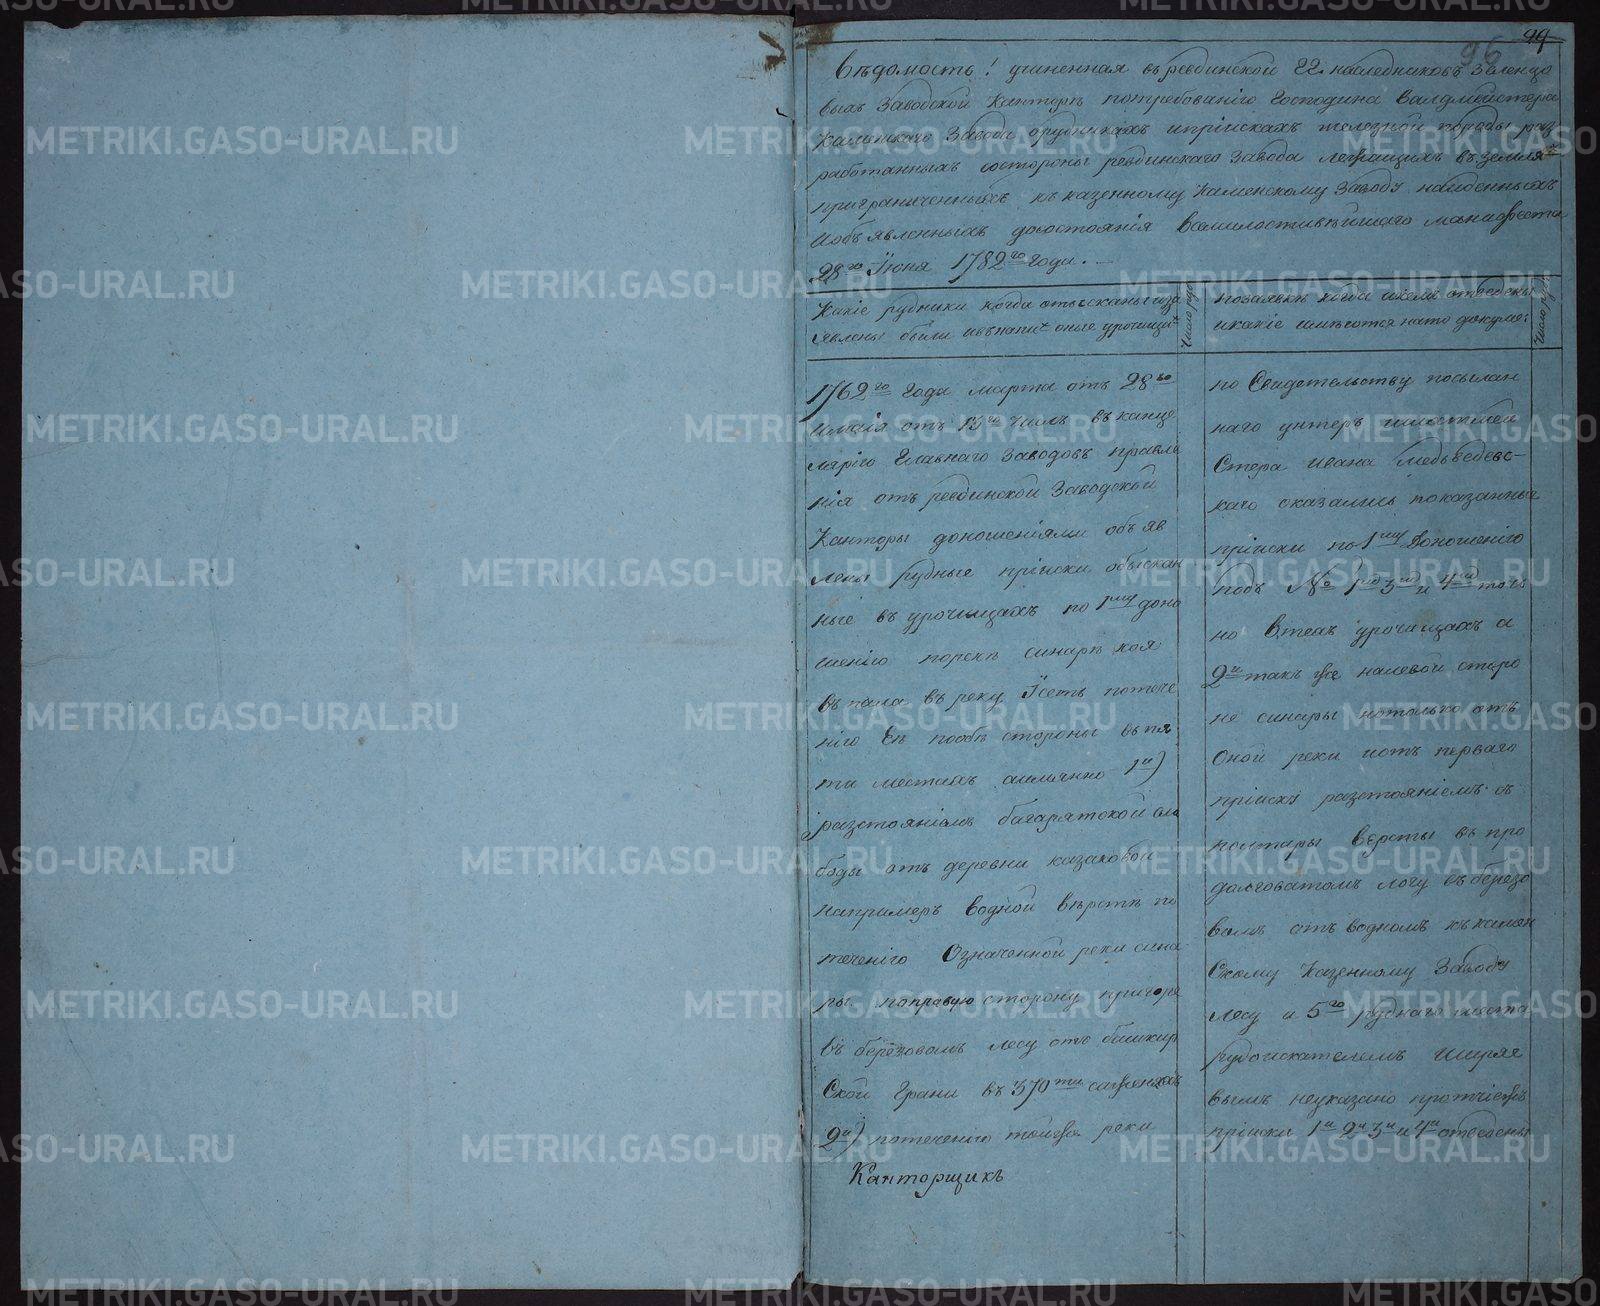 96 99
Вѣдомость! учиненная въ ревдинской гг. наследниковъ Зеленцо
выхъ Заводской Канторѣ потребованiю Господина Валдмейстера
Каменскаго Завода орудникахъ ипрiискахъ железной породы раз
работанныхъ состороны ревдинскаго Завода лежащихъ въземлях
приграниченныхъ къ казенному Каменскому Заводу найденныхъ
Иобъявленныхъ досостоянiя Всемилостивѣйшаго манифеста
28го Iюня 1782го года.
Какiе рудники когда отысканы иза
явлены были ивъкапи оные урочищи
Число рудъ
позаявкѣ когда икемъ отведены
икакiе имѣются нато докуме:
Число рудъ
1762го Года марта отъ 28го
Имаiя отъ 13го Числъ въ канце
лярiю Главнаго Заводовъ правле
нiя отъ ревдинской Заводской
Канторы доношенiями объяв
лены Рудные прiиски обыскан
ные въ урочищахъ по 1му доно
шенiю порекѣ синарѣ коя
въпала въ реку Iсеть потече
нiю Еѣ пообѣ стороны въ пя
ти местахъ аимянно 1й)
разстоянiемъ багарятской сло
боды отъ деревни казаковой
например водной верстѣ по
теченiю Означенной реки сина
ры поправую сторону пригоре
въ березовомъ лесу отъ башкир
Ской Грани въ 370ти саженяхъ
2й) потеченiю тойже реки
Канторщикъ
по Свидетельству посылан
наго унтеръ шихтмей
Стера ивана медведевс-
каго оказались показанные
прiиски по 1му Доношенiю
подъ № 1мъ 3мъ и 4мъ точ
но Втехъ урочищахъ а
2й также налевой сторо
не синары нотолько отъ
Оной реки иотъ перваго
прiиску разстоянiемъ въ
полторы Версты въ про
далговатомъ логу въ березо
вомъ отводномъ къ камен
Скому Казенному Заводу
лесу а 5го руднаго места
рудоискателемъ Ширяе
вымъ неуказано протчiежъ
прiиски 1й 2й 3й и 4й отведены